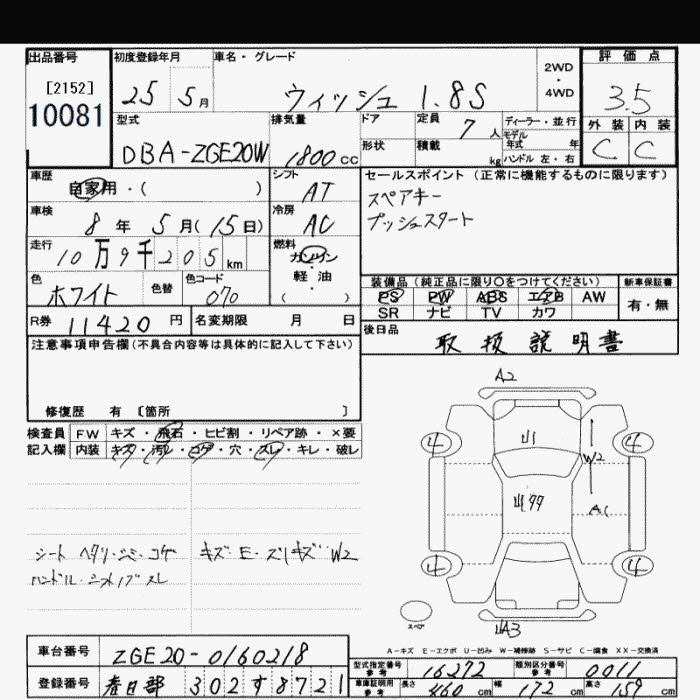 出品番号 初度登録年月 車名・グレード 2WD・4WD 評価点
[2152]
10081
25 5月 ウィッシュ 1.8S 3.5
型式 排気量 ドア 定員 7人 ディーラー・並行 外装 内装
モデル年式 年
DBA-ZGE20W 1800cc 形状 積載 kg ハンドル 左・右 C C
車歴 自家用・( ) シフト AT セールスポイント(正常に機能するものに限ります)
スペアキー
プッシュスタート
車検 8年 5月(15日) 冷房 AC
走行 10万9千205km 燃料 ガソリン・軽油( )
色 ホワイト 色替 色コード 070
装備品(純正品に限り〇をつけてください) 新車保証書
PS PW ABS エアB AW 有・無
SR ナビ TV カワ
R券 11420円 名変期限 月 日
後日品 取扱説明書
注意事項申告欄(不具合内容等は具体的に記入して下さい)
修復歴 有 [箇所 ]
検査員 FW キズ・飛石・ヒビ割・リペア跡・×要
記入欄 内装 キズ・汚レ・コゲ・穴・スレ・キレ・破レ
シート ヘタリ・シミ・コゲ
キズ・E・スリキズ W2
A2
4 4
山1
W2
A1
4 4
スペア
A-キズ E-エクボ U-凹み W-補修跡 S-サビ C-腐食 XX-交換済
車台番号 ZGE20-0160218
型式指定番号 参考 16272 類別区分番号 参考 0011
登録番号 春日部 302す8721
車庫証明用 参考 長さ 460cm 幅 172cm 高さ 159cm